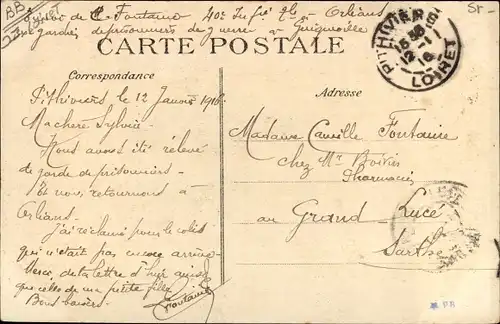 de C. Fontaine 40e Inf rie Orléans
prisonniers de guerre
CARTE POSTALE
PITHIVIERS
12-1
16
LOIRET
Correspondance
Adresse
Pithiviers le 12 Janvier 1916
Ma chère Sylvia
Nous avons été relevé
de garde de prisonniers
Et nous retournons à
Orléans.
J'ai réclamé pour le colis
qui n'était pas encore arrivé
Merci de ta lettre d'hier ainsi
que celle de ma petite fille
Bons baisers
Fontaine
Madame Camille Fontaine
chez Mr Boivin
Pharmacie
au Grand Lucé
Sarthe